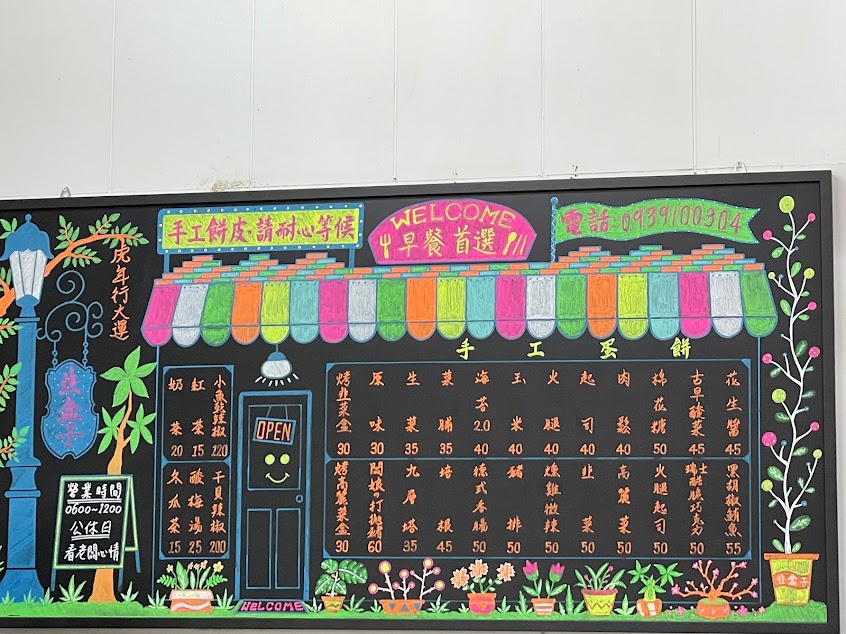 手工餅皮·請耐心等候
WELCOME
早餐首選
電話:0939100304
虎年行大運
韭盒子
營業時間
0600~1200
公休日
看老闆心情
OPEN
WELCOME
小魚乾辣椒 120
紅茶 15
奶茶 20
干貝辣椒 200
酸梅湯 25
冬瓜茶 15
手工蛋餅
花生醬 45
古早酸菜 45
棉花糖 50
肉鬆 40
起司 40
火腿 40
玉米 40
海苔2.0 40
菜脯 35
生菜 35
原味 30
烤韭菜盒 30
黑胡椒鮪魚 55
瑞士酷脆巧克力 50
火腿起司 50
高麗菜 50
韭菜 50
燻雞微辣 50
豬排 50
德式香腸 50
培根 45
九層塔 35
闆娘の打拋豬 60
烤高麗菜盒 30
韭盒子